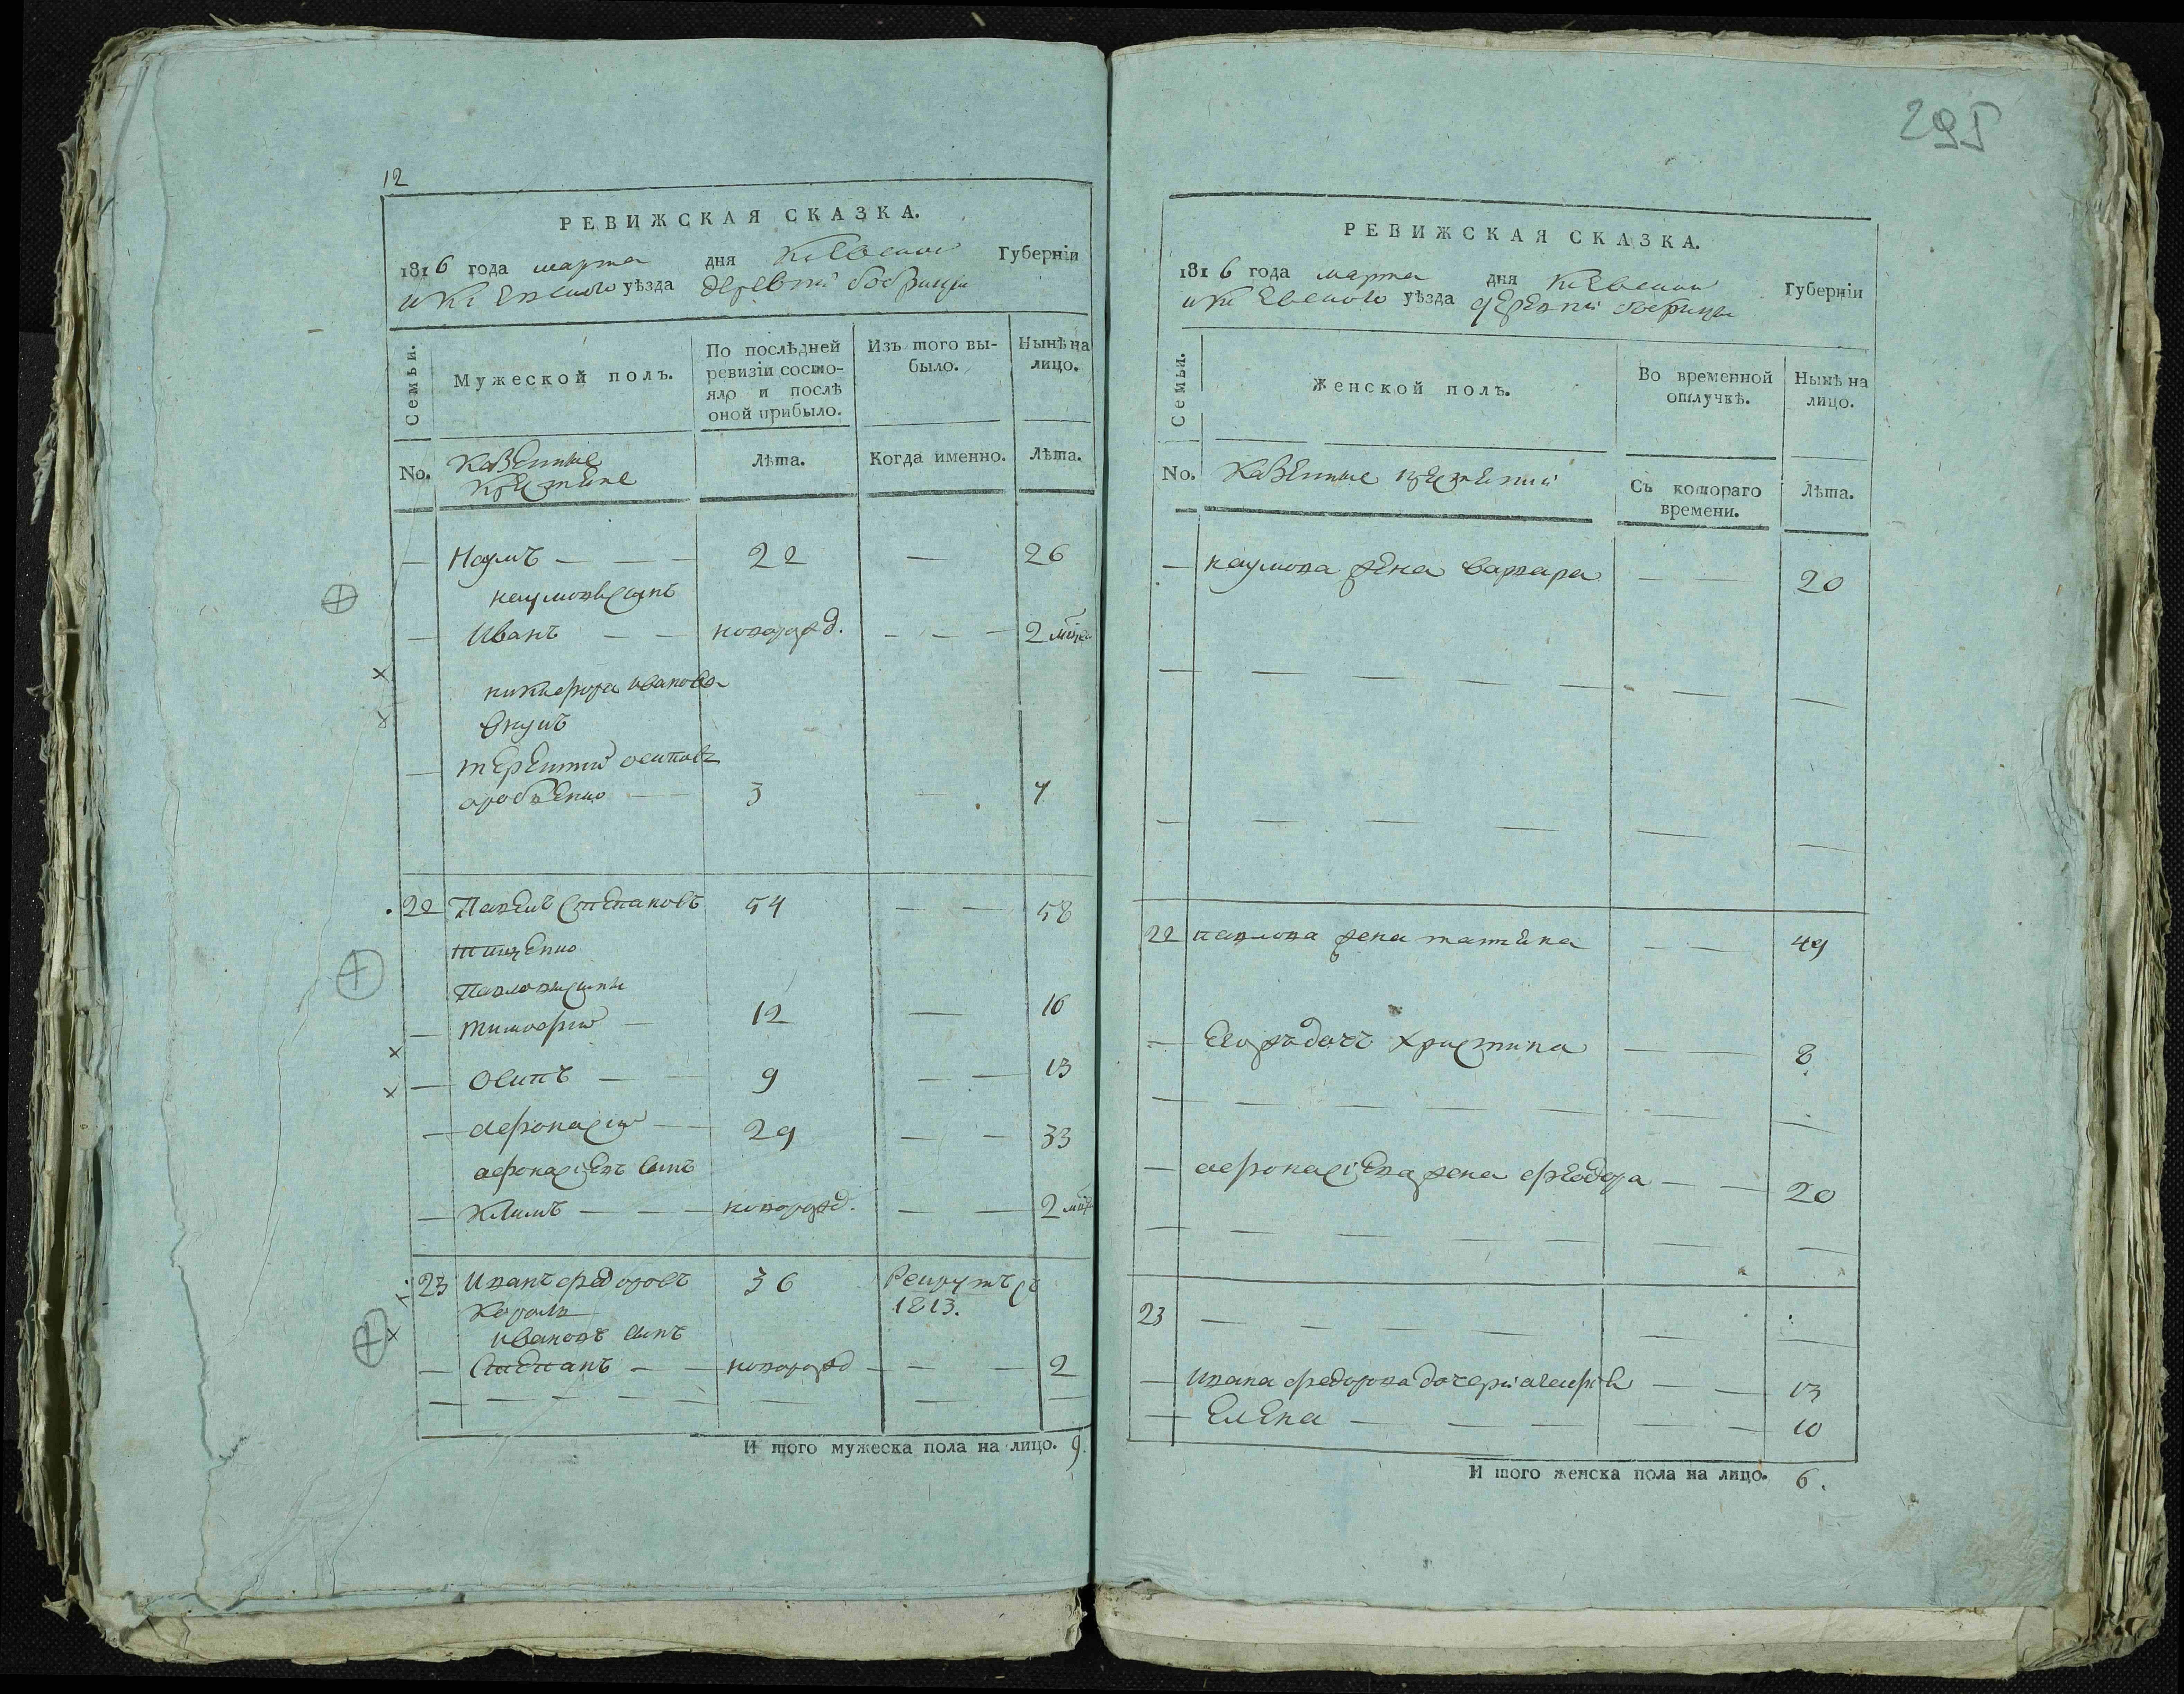 12
РЕВИЖСКАЯ СКАЗКА.
1816 года марта дня Кіевской Губерніи
и Кіевского уѣзда деревни бобрицы
Семьи.
Мужеской полъ.
По послѣдней ревизіи состояло и послѣ оной прибыло.
Изъ того выбыло.
Нынѣ на лицо.
No.
Казенные
Крестяне
Лѣта.
Когда именно.
Лѣта.
— Наумъ — — — 22 — 26
наумовъ сынъ
— Иванъ — — новорожд. — — — 2 мѣся
никифора иванова
внукъ
— терентий осиповъ
3 — 7
22 Павелъ Степановъ 54 — — 58
тищенко
Павловы сыны
— тимофей — 12 — 16
— осипъ — — 9 — — 13
— афонасий — 29 — — 33
афонасіевъ сынъ
— Климъ — — — новорожд. — — 2 мѣся
23 Иванъ федоровъ 36 Рекрутъ съ
Король 1813.
ивановъ сынъ
— Степанъ — — новорожд — — — 2
— — — — — — — —
И того мужеска пола на лицо. 9.
295
РЕВИЖСКАЯ СКАЗКА.
1816 года марта дня Кіевской Губерніи
и Кіевского уѣзда деревни бобрицы
Семьи.
Женской полъ.
Во временной отлучкѣ.
Нынѣ на лицо.
No.
Казенные крестяний
Съ котораго времени.
Лѣта.
— наумова жена варвара — — 20
— — — — — — — —
— — — — — — — —
22 павлова жена таттяна — — 49
— Егожъ дочъ христина — — 8
— — — — — — — —
— афонасіева жена фѣодора — — 20
— — — — — — — —
23 — — — — — — —
— ивана федорова дочери — — 13
— Елена — — — — — 10
И того женска пола на лицо. 6.